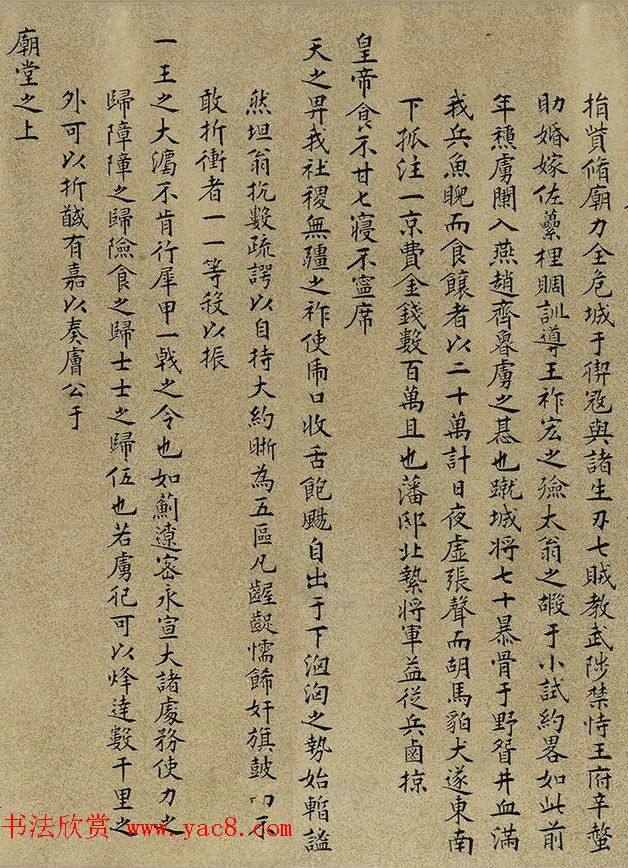 捐貲脩廟力全危城于禊寇與諸生刃七賊教武陟禁恃王府辛螫
助婚嫁佐虆梩賙訓導王祚宏之殮太翁之嘏于小試約畧如此前
年穗虜闌入燕趙齊魯虜之惎也蹴城将七十暴骨于野眢井血滿
我兵魚睨而食饟者以二十萬計日夜虛張聲而胡馬豹犬遂東南
下孤注一京費金錢數百萬且也藩邸北縶将軍益從兵鹵掠
皇帝食不甘七寢不寧席
天之畀我社稷無疆之祚使席口收舌飽颺自出于下洶洶之勢始暫謐
然坦翁抗數疏諤以自待大約晣為五區凡齷齪懦餙奸旗鼓
敢折衝者一一等殺以振
一王之大瀉不肯行犀甲一戟之令也如薊遼密永宣大諸處務使力之
歸障障之歸險食之歸士士之歸伍也若虜犯可以烽達數千里之
外可以折馘有嘉以奏膚公于
廟堂之上
书法欣赏 www.yac8.com